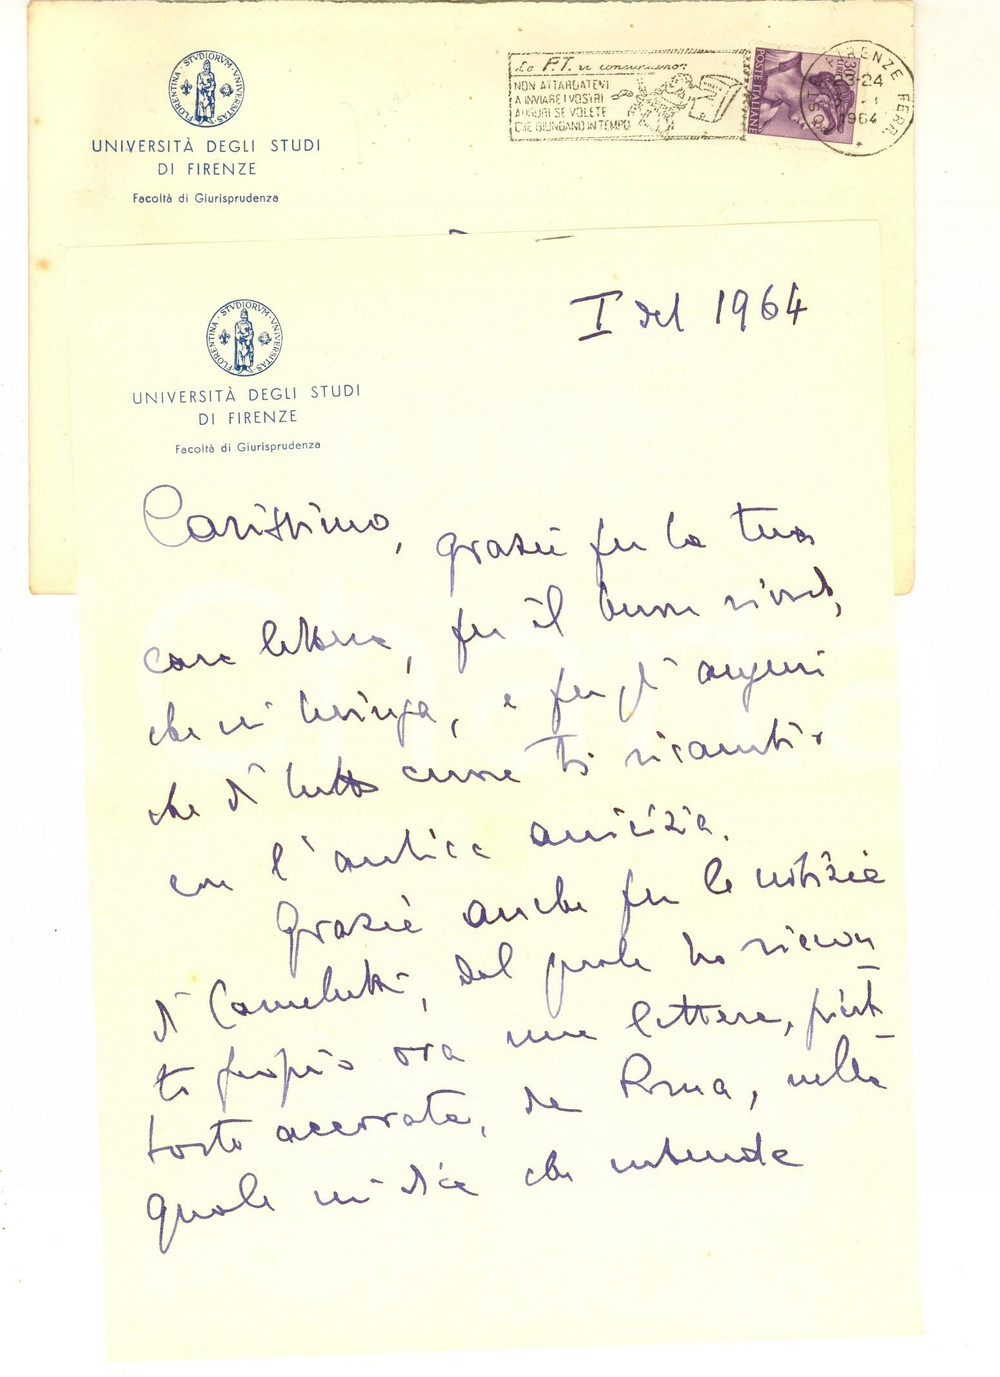 FLORENTINA · STVDIORVM · VNIVERSITAS
UNIVERSITÀ DEGLI STUDI
DI FIRENZE
Facoltà di Giurisprudenza
Le P.T. vi consigliano:
NON ATTARDATEVI
A INVIARE I VOSTRI
AUGURI SE VOLETE
CHE GIUNGANO IN TEMPO
POSTE ITALIANE
FIRENZE FERR.
23-24
1964
FLORENTINA · STVDIORVM · VNIVERSITAS
UNIVERSITÀ DEGLI STUDI
DI FIRENZE
Facoltà di Giurisprudenza
I del 1964
Carissimo, grazie per la tua
cara lettera, per il buon ricordo,
che mi lusinga, e per gli auguri
che di tutto cuore ti ricambio
con l'antica amicizia.
Grazie anche per le notizie
di Carnelutti, dal quale ho ricevu
to proprio ora una lettera, piut-
tosto accorata, da Roma, nella
quale mi dice che intende